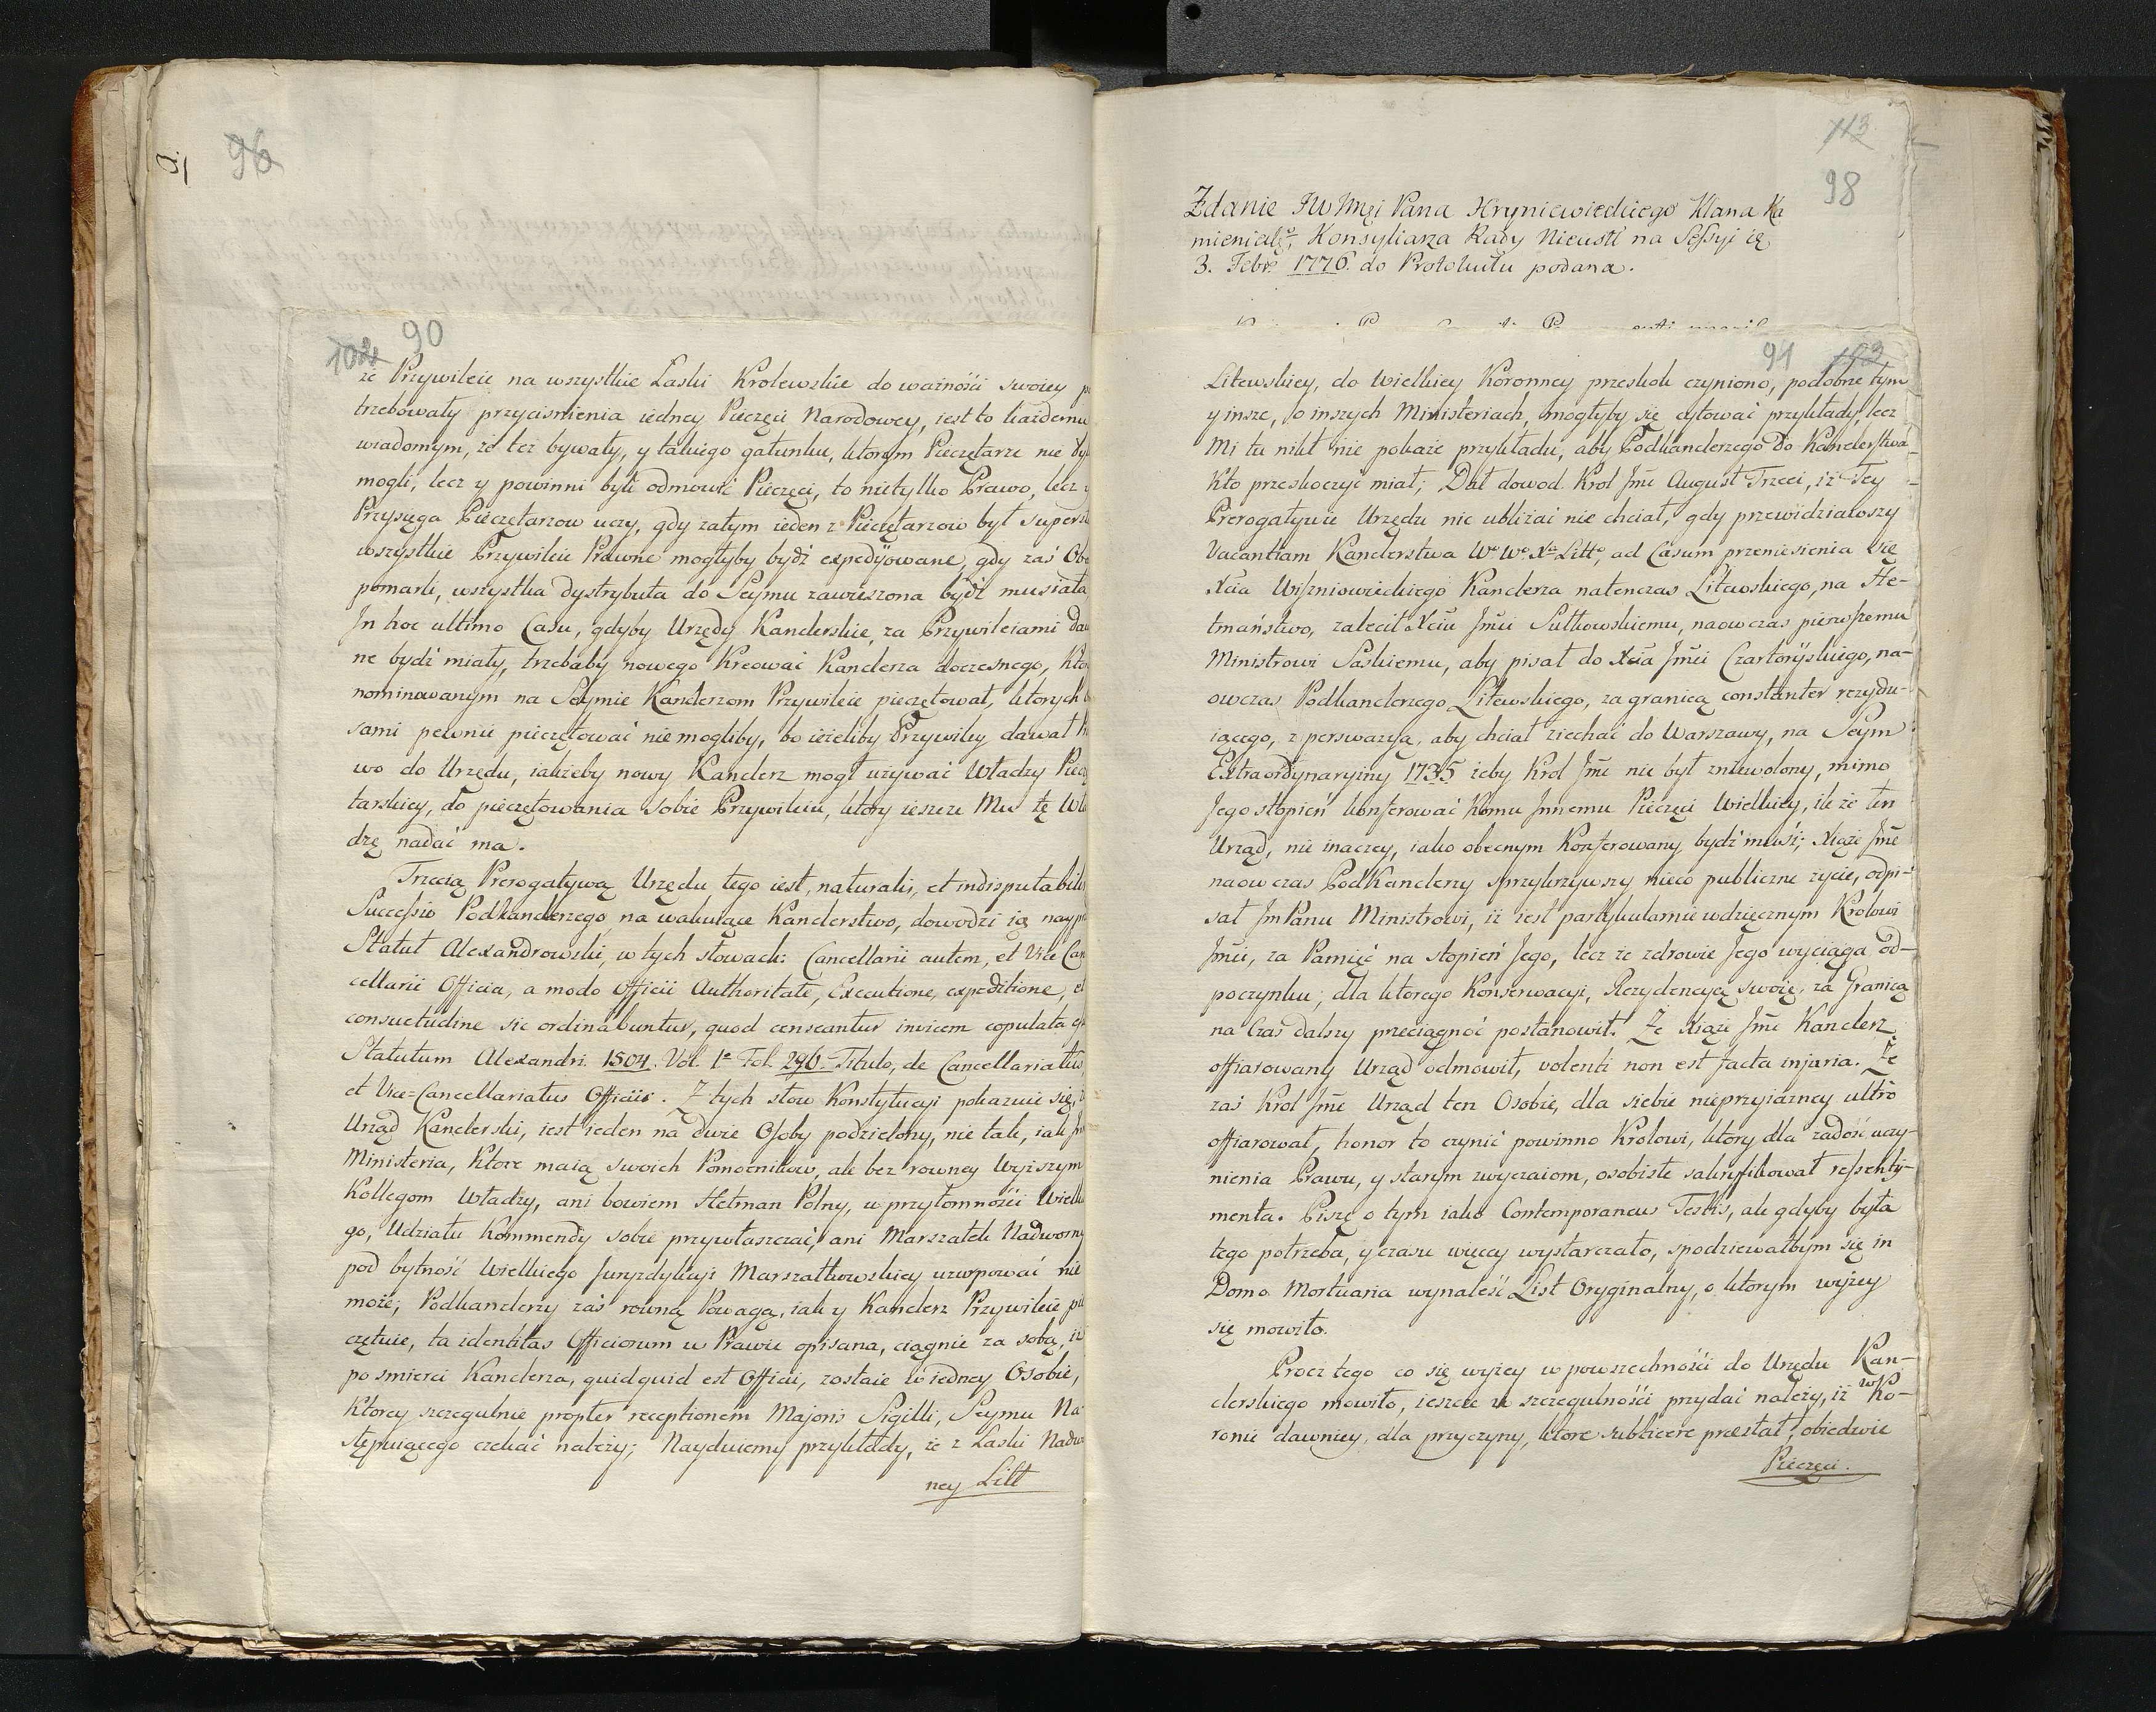 96
102 90
że Przywileie na wszystkie Laski Krolewskie do ważności swoiey
trzebowały przyciśnienia iedney Pieczęci Narodowey, iest to każdemu
wiadomym, że też bywały, y takiego gatunku, ktorym Pieczętarze nie
mogli, lecz y powinni byli odmowić Pieczęci, to nietylko Prawo, lecz
Przysęga Pieczętarzow uczy, gdy zatym ieden z Pieczętarzow był
wszystkie Przywileie Prawne mogłyby bydź expedyowane, gdy zaś
pomarli, wszystka dystrybuta do Seymu zawieszona bydź musiała
In hoc ultimo Casu, gdyby Urzędy Kanclerskie, za Przywileiami
ne bydź miały, trzebaby nowego kreować Kanclerza doczesnego,
nominowanym na Seymie Kanclerzom Przywileie pieczętował, ktorych
sami pewnie pieczętować nie mogliby, bo ieżeliby Przywiley dawał
wo do Urzędu, iakżeby nowy Kanclerz mogł używać Władzy
tarskiey, do pieczętowania sobie Przywileiu, ktory ieszcze Mu tę
dzę nadać ma.
Trzecią Prerogatywą Urzędu tego iest, naturalis, et indisputabilis
Successio Podkanclerzego na wakuiące Kanclerstwo, dowodzi ią
Statut Alexandrowski, w tych słowach: Cancellarii autem, et Vice
cellarii Officia, a modo Officii Authoritate, Executione, expeditione, et
consuetudine sic ordinabuntur, quod censeantur invicem copulata
Statutum Alexandri. 1504. Vol. 1º Fol. 296. Titulo, de Cancellariatus,
et Vice=Cancellariatus Officiis. Z tych słow Konstytucyi pokazuie się,
Urząd Kanclerski, iest ieden na dwie Osoby podzielony, nie tak, iak
Ministeria, Ktore maią swoich Pomocnikow, ale bez rowney Wyższym
Kollegom Władzy, ani bowiem Hetman Polny, w przytomności
go, Udziału Kommendy sobie przywłaszczać, ani Marszałek Nadworny
pod bytność Wielkiego Juryzdykcyi Marszałkowskiey uzurpować nie
może; Podkanclerzy zaś rowną Powagą, iak y Kanclerz Przywileie
czętuie, ta identitas Officiorum w Prawie opisana, ciągnie za sobą, iż
po smierci Kanclerza, quidquid est Officii, zostaie w iedney Osobie,
Ktorey szczegulnie propter receptionem Majoris Sigilli, Seymu
stępuiącego czekać należy; Nayduiemy przykłady, że z Laski
ney Litt
113
98
Zdanie JW Jmci Pana Hryniewieckiego Kłana Ka
mienickº, Konsyliarza Rady Nieust na Sessyi
3. Febrº 1776. do Protokułu podana.
91 103
Litewskiey, do Wielkiey Koronney przeskok czyniono, podobne tym
y insze, o inszych Ministeriach, mogłyby się cytować przykłady, lecz
Mi tu nikt nie pokaże przykładu, aby Podkanclerzego do Kanclerstwa
Kto przeskoczyć miał; Dał dowod Krol Jmć August Trzeci, iż Tey
Prerogatywie Urzędu nic ubliżać nie chciał, gdy przewidziawszy
Vacantiam Kanclerstwa Wº Wº Xª Littº, ad Casum przeniesienia się
Xcia Wiszniowieckiego Kanclerza natenczas Litewskiego, na He-
tmaństwo, zalecił Xciu Jmci Sułkowskiemu, naowczas pierwszemu
Ministrowi Saskiemu, aby pisał do Xcia Jmci Czartoryskiego, na-
owczas Podkanclerzego Litewskiego, za granicą constanter rezydu-
iącego, z perswazyą, aby chciał ziechać do Warszawy, na Seym
Extraordynaryiny 1735 żeby Krol Jmć nie był zniewolony, mimo
Jego stopień konferować komu Innemu Pieczęci Wielkiey, ile że ten
Urząd, nie inaczey, iako obecnym Konferowany bydź musi; Xiąże Jmć
naowczas PodKanclerzy sprzykrzywszy nieco publiczne życie, odpi-
sał JmPanu Ministrowi, iż iest partykularnie wdzięcznym Krolowi
Jmci, za Pamięć na stopień Jego, lecz że zdrowie Jego wyciąga od-
poczynku, dla ktorego Konserwacyi, Rezydencyę swoię, za Granicą
na Czas dalszy przeciągnąć postanowił. Że Xiąże Jmć Kanclerz
offiarowany Urząd odmowił, volenti non est facta injuria. Że
zaś Krol Jmć Urząd ten Osobie, dla siebie nieprzyiazney ultrò
offiarował, honor to czynić powinno Krolowi, ktory dla zadość uczy-
nienia Prawu, y starym zwyczaiom, osobiste sakryfikował ressenty-
menta. Piszę o tym iako Contemporaneus Testis, ale gdyby była
tego potrzeba, y czasu więcey wystarczało, spodziewałbym się in
Domo Mortuaria wynaleść List Oryginalny, o ktorym wyżey
się mowiło.
Procz tego co się wyżey w powszechności do Urzędu Kan-
clerskiego mowiło, ieszcze w szczegulności przydać należy, iż w Ko-
ronie dawniey, dla przyczyny, ktore subticere praestat, obiedwie
Pieczęci.